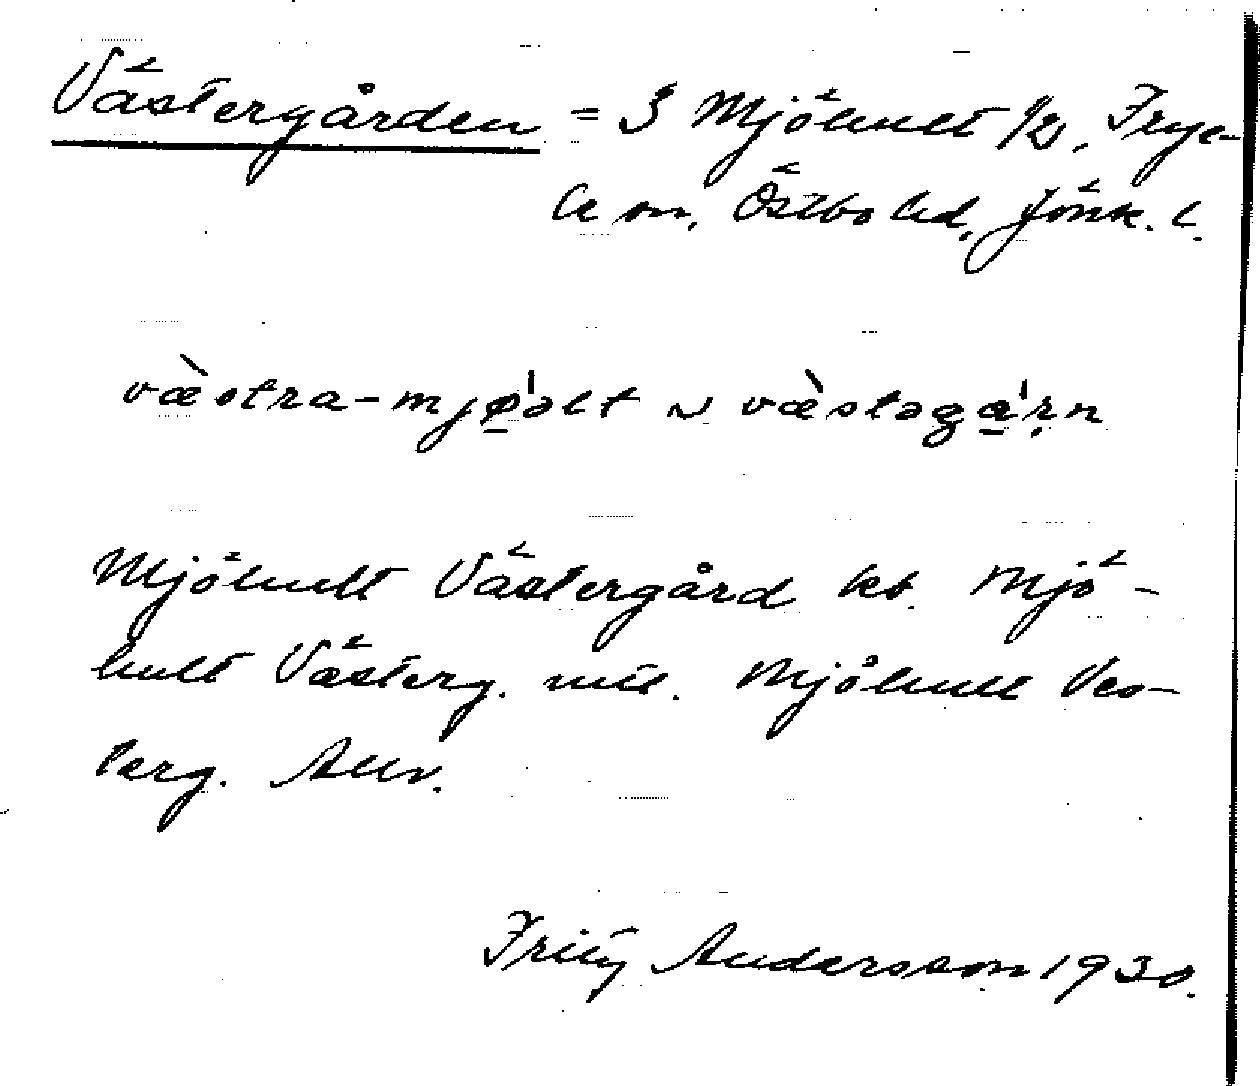 Västergården = 3 Mjöhult 1/2, Frye-
le sn, Östbo hd, Jönk. l.
væ̀stra-mjø̱̍əlt ~ væ̀stəga̱̍ṛn
Mjöhult Västergård kb. Mjö-
hult Västerg. mtl. Mjöhult Ves-
terg. Allm.
Fritz Andersson 1930.